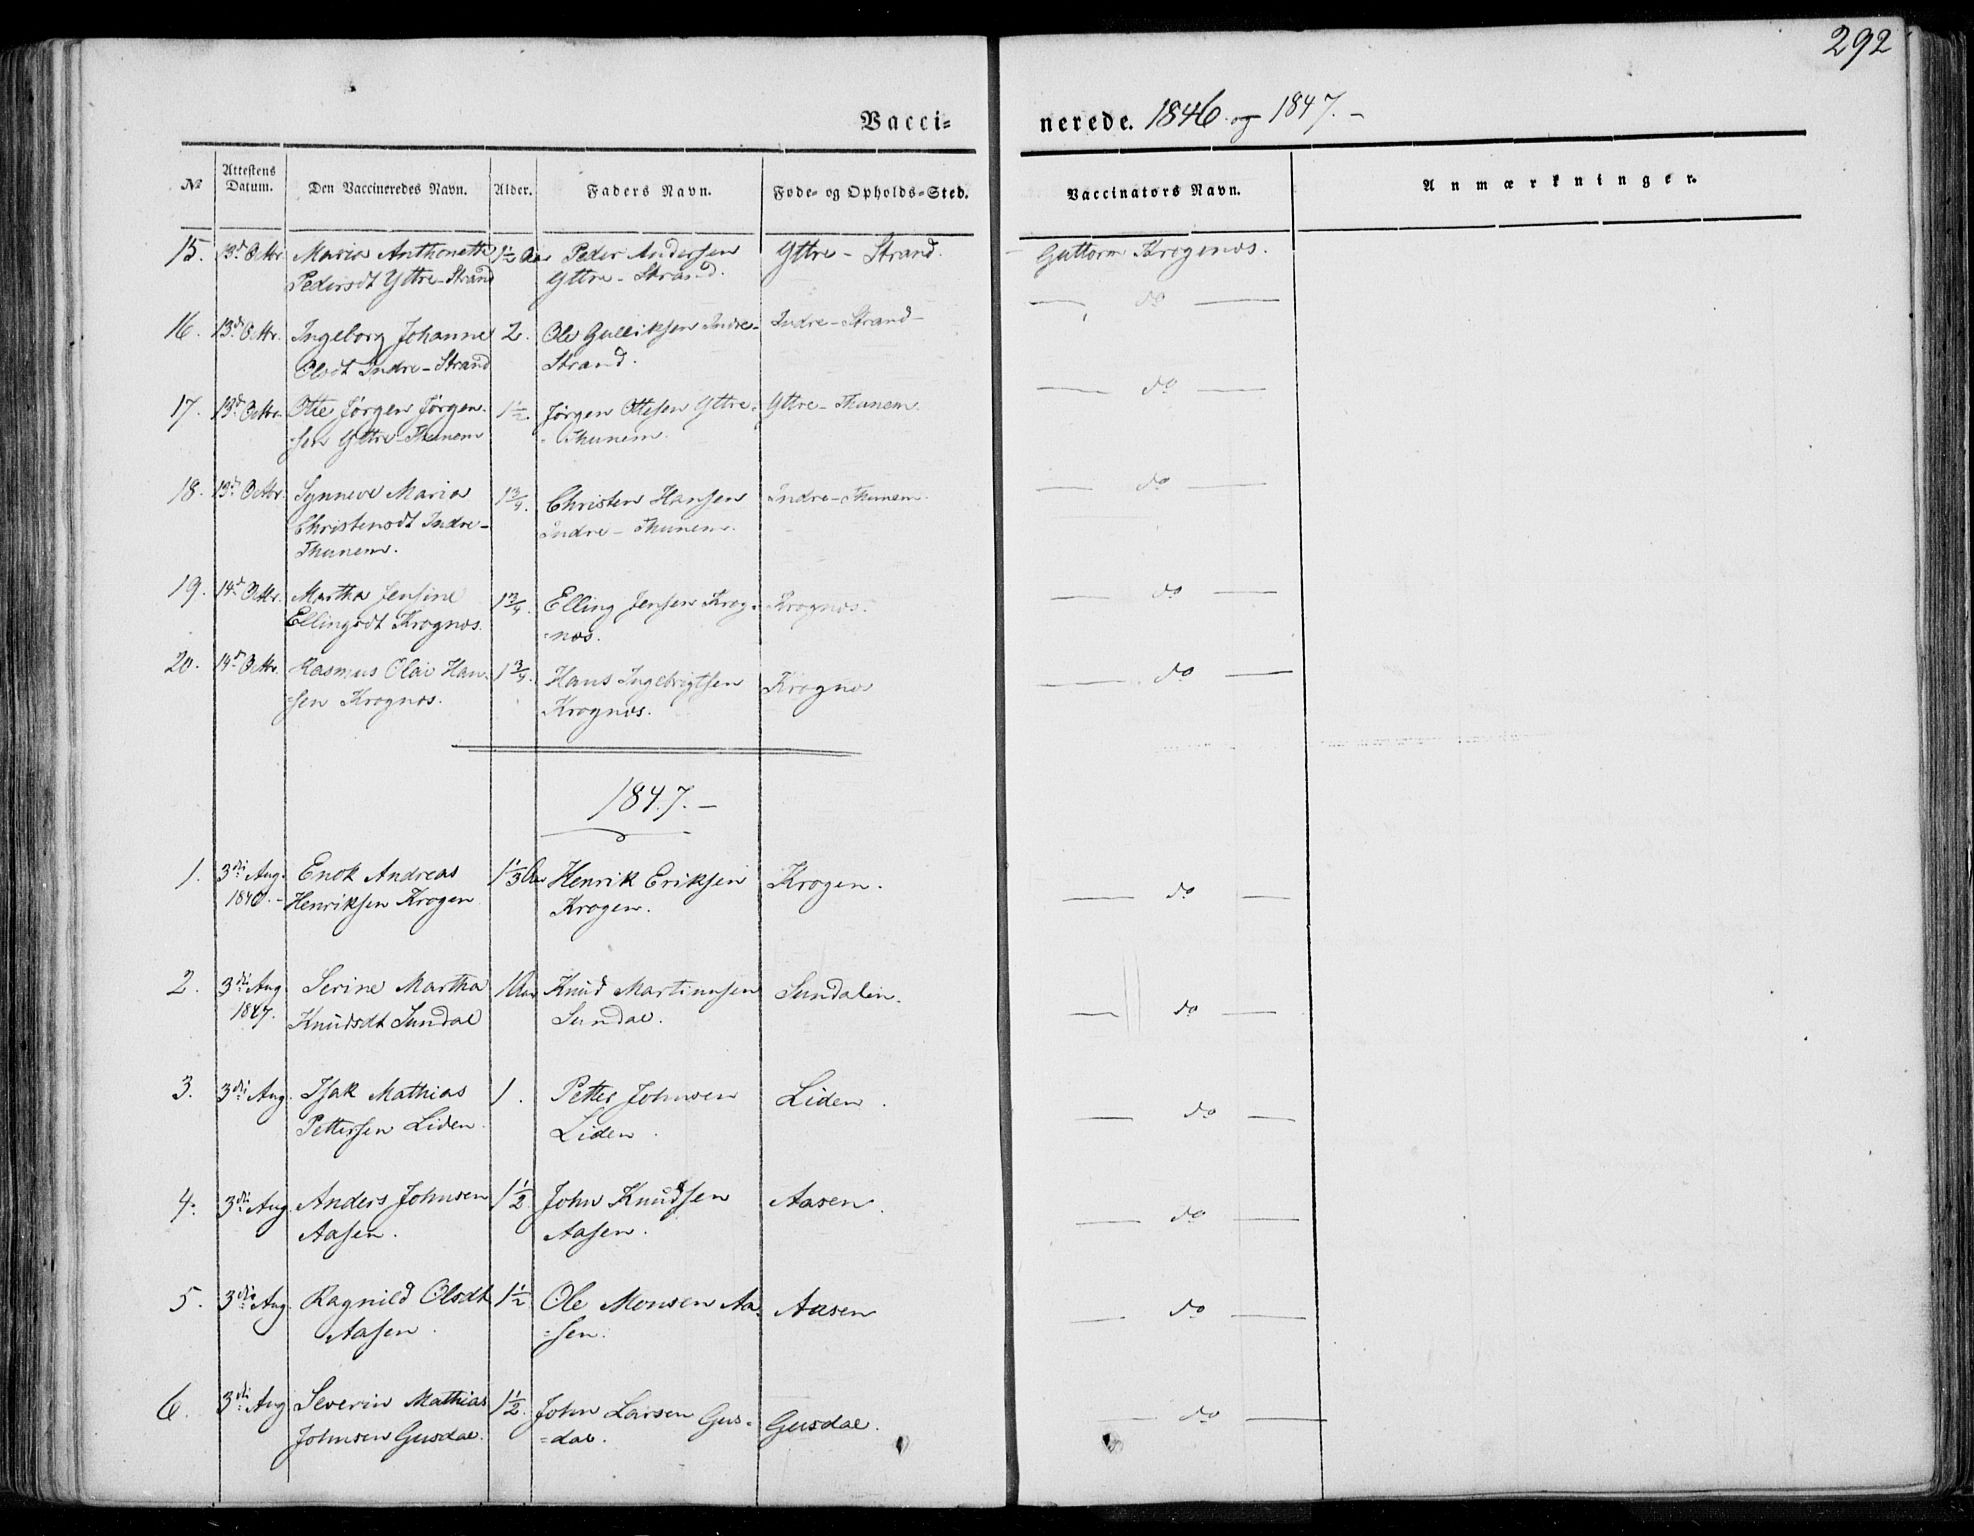 292
Vacci-
nerede. 1846 og 1847. -
No
Attestens Datum.
Den Vaccineredes Navn.
Alder.
Faders Navn.
Føde- og Opholds-Sted.
Vaccinators Navn.
Anmærkninger.
15. 13de Octbr. Maria Anthonette 1½ Aar Peder Andersen Yttre - Strand. Guttorm Krognæs.
Pedersdt Yttre-Strand Yttre - Strand. do
16. 13de Octbr. Ingeborg Johanne 2. Ole Gulliksen Indre- Indre-Strand
Olsdt Indre-Strand Strand.
17. 13de Octbr. Otte Jørgen Jørgen- 1½. Jørgen Ottesen Yttre- Yttre-Thunem. do
-sen Yttre-Thunem -Thunem.
18. 13de Octbr. Synneve Maria 1¾. Christen Hansen Indre-Thunem. do
Christensdt Indre- Indre-Thunem.
Thunem.
19. 14de Octbr. Martha Jensine 1¾. Elling Jensen Krog- Krognæs. do
Ellingsdt Krognæs. -næs.
20. 14de Octbr. Rasmus Olai Han- 1¾. Hans Ingebrigtsen Krognæs do
-sen Krognæs. Krognæs.
1847. -
1. 3die Aug. Enok Andreas 1⅓ Aar Henrik Eriksen Krogen. do
Henriksen Krogen Krogen.
2. 3die Aug. Serine Martha 1 Aar Knud Martinusen Sundalen. do
1847. Knudsdt Sundal Sundal.
3. 3die Aug. Isak Mathias 1. Petter Johnsen Liden. do
Pettersen Liden. Liden.
4. 3die Aug. Anders Johnsen 1½ John Knudsen Aasen. do
Aasen. Aasen.
5. 3die Aug. Ragnild Olsdt 1½. Ole Monsen Aa- Aasen do
Aasen. -sen.
6. 3die Aug Severin Mathias 1½. John Larsen Gus- Gusdal. do
Johnsen Gusdal. -dal.